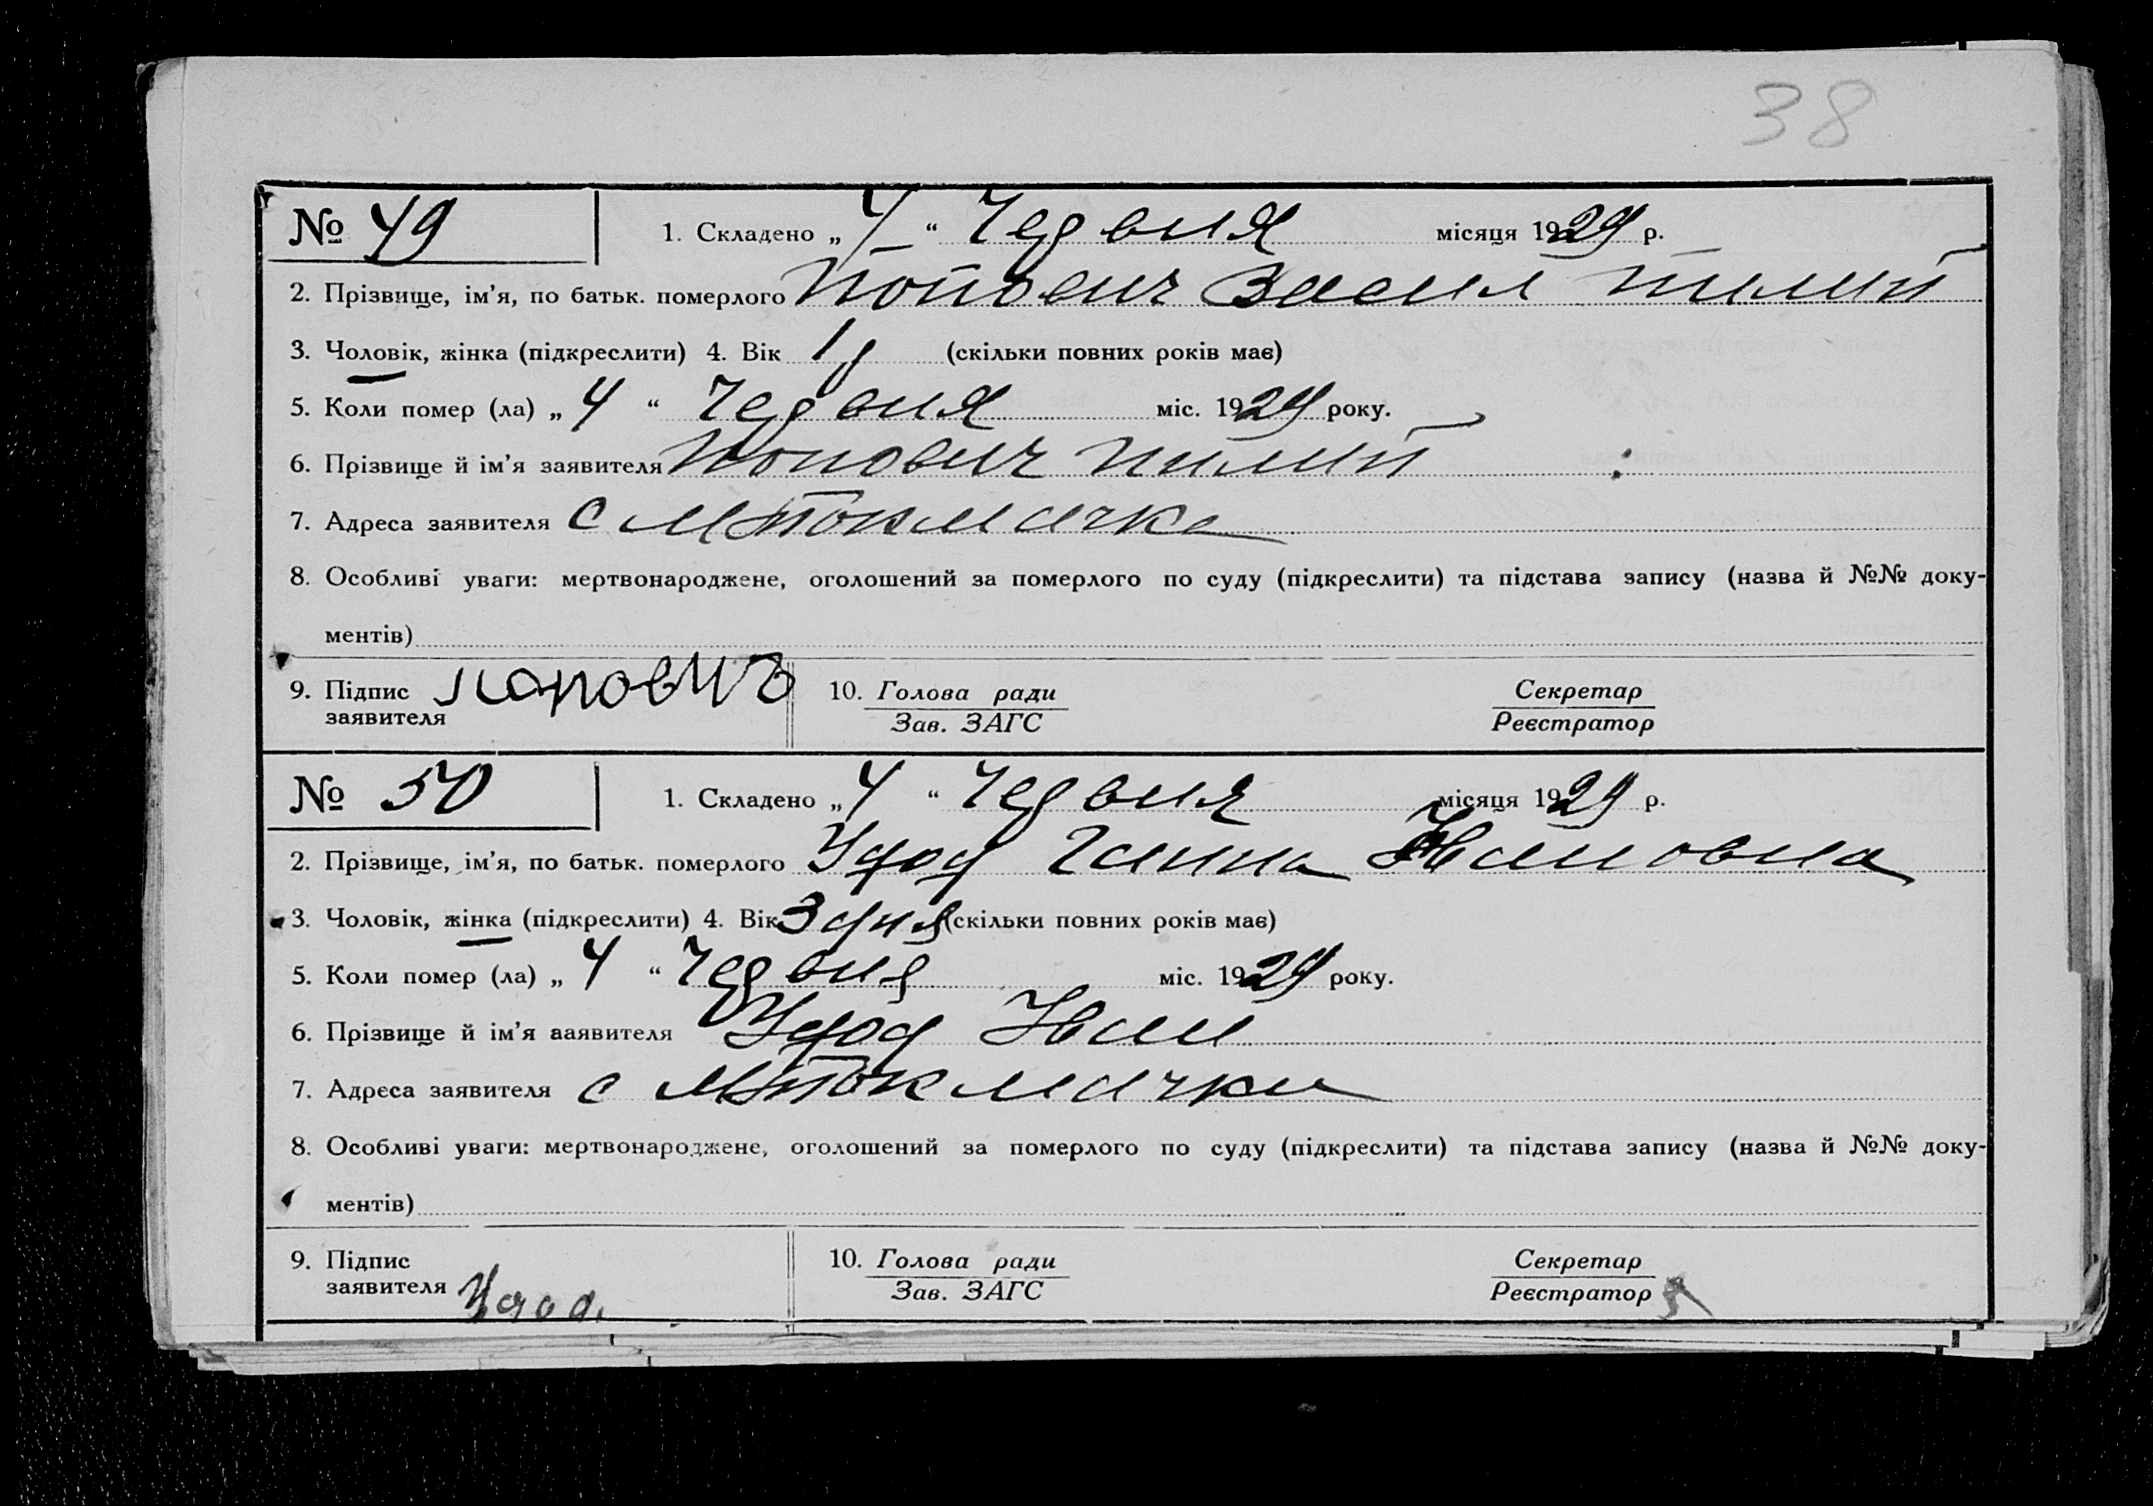 38
№ 49 1. Складено „ 4 “ Червня місяця 1929 р.
2. Прізвище, ім’я, по батьк. померлого Попович Васил Пилип
3. Чоловік, жінка (підкреслити) 4. Вік 1 р (скільки повних років має)
5. Коли помер (ла) „ 4 “ Червня міс. 1929 року.
6. Прізвище й ім’я заявителя Попович Пилип
7. Адреса заявителя с МТокмачка
8. Особливі уваги: мертвонароджене, оголошений за померлого по суду (підкреслити) та підстава запису (назва й №№ доку-
ментів)
9. Підпис заявителя Поповичъ 10. Голова ради Секретар
Зав. ЗАГС Реєстратор
№ 50 1. Складено „ 4 “ Червня місяця 1929 р.
2. Прізвище, ім’я, по батьк. померлого Удод Ганна Ивановна
3. Чоловік, жінка (підкреслити) 4. Вік 3 дня (скільки повних років має)
5. Коли помер (ла) „ 4 “ Червня міс. 1929 року.
6. Прізвище й ім’я ааявителя Удод Иван
7. Адреса заявителя с МТокмачка
8. Особливі уваги: мертвонароджене, оголошений за померлого по суду (підкреслити) та підстава запису (назва й №№ доку-
ментів)
9. Підпис заявителя Удод. 10. Голова ради Секретар
Зав. ЗАГС Реєстратор